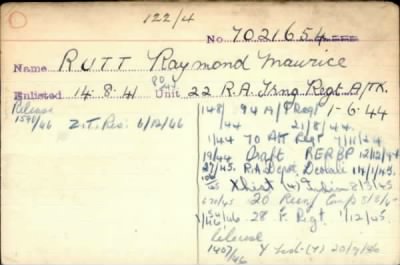 122/4
No. 7021654
Name RUTT Raymond Maurice
Enlisted 14.8.41 Unit 22 R.A. Trng Regt A/TK.
Release
1590/46 Z.T. Res: 6/12/46
148/44 94 A/T Regt 1-6-44
21/8/44.
1/44 70 Att Regt 7/11/44
19/44 Draft RERBP 12/12/44
27/45. R.A. Depot, Deolali 14/1/45.
Xlist (4) Indian 8/3/45
670/45 20 Reinf Camp
28 F. Regt 1/12/45.
Release
1407/46 Y List (4) 20/9/46